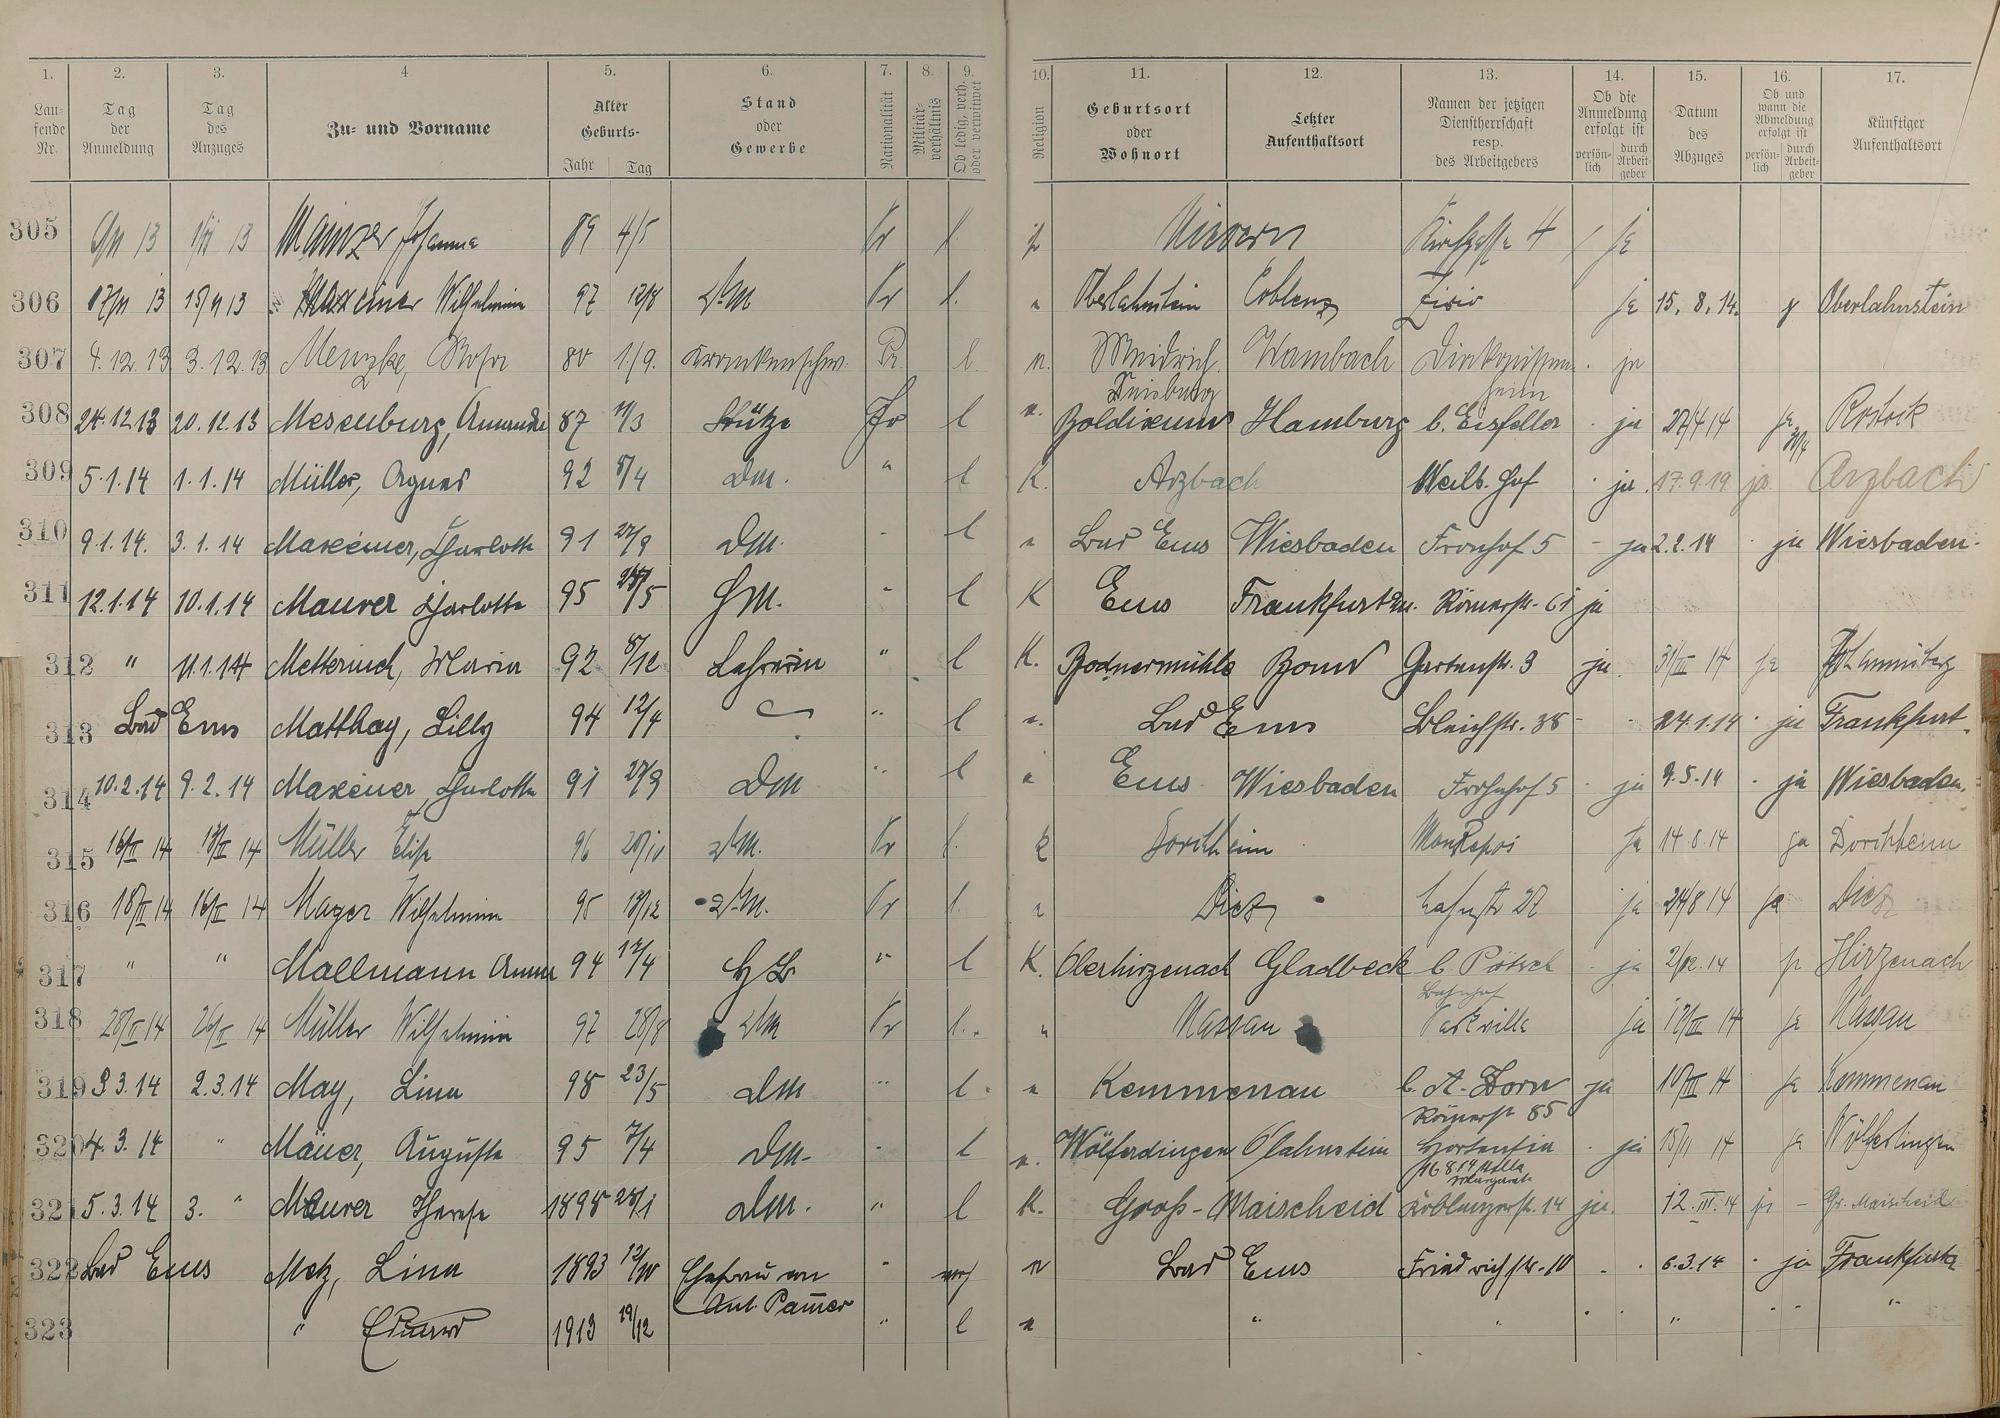 1. 2. 3. 4 5. 6. 7. 8. 9. 10. 11. 12. 13. 14. 15. 16. 17.
Laufende Nr. Tag der Anmeldung Tag des Anzuges Zu- und Vorname Alter Geburts- Jahr Tag Stand oder Gewerbe Nationalität Militärverhältnis Ob ledig, verh. oder verwitwet Religion Geburtsort oder Wohnort Letzter Aufenthaltsort Namen der jetzigen Dienstherrschaft resp. des Arbeitgebers Ob die Anmeldung erfolgt ist persönlich durch Arbeitgeber Datum des Abzuges Ob und wann die Abmeldung erfolgt ist persönlich durch Arbeitgeber Künftiger Aufenthaltsort
305 Mainzer Johanna 89 4/5 Pr l. Nievern 4 ja
306 17/11 13 15/11 13 Maxeiner Wilhelmine 97 12/8 D.M Pr l. " Oberlahnstein Coblenz ja 15.8.14. Oberlahnstein
307 4.12.13 3.12.13 Menzke, Rosa 80 1./9. Krankenschw. Pr. l. Meidrich Duisburg Wambach Diakonissenheim ja
308 24.12.13 20.12.13 Mesenburg, Amanda 87 11/3 Stütze Pr l Hamburg b. Eisfeller ja 27/4 14 ja Rostock
309 5.1.14 1.1.14 Müller, Agnes 92 8/4 DM. " l K. Arzbach Weilb. Hof ja 17.9.19 ja Arzbach
310 9.1.14. 3.1.14 Maxeiner, Charlotte 91 27/9 DM. l Bad Ems Wiesbaden Fronhof 5 - ja 2.2.14 ja Wiesbaden.
311 12.1.14 10.1.14 Maurer Charlotte 95 HM. l K Ems Frankfurt a/m. Römerstr. 61 ja
312 " 11.1.14 Metternich, Maria 92 8/12 Lehrerin " l K. Bodnermühle Bonn Gartenstr. 3 ja 31/III 14 ja
313 Bad Ems Matthay, Lilly 94 12/4 " l Bad Ems Bleichstr. 38 - 24.1.14 ja Frankfurt.
314 10.2.14 9.2.14 Maxeiner Charlotte 91 27/9 DM " l Ems Wiesbaden Frohnhof 5 ja 9.5.14 ja Wiesbaden.
315 16/II 14 14 Müller Elise 96 20/10 D.M. Pr l. k Dorchheim MonRepos ja 14.8.14 ja Dorchheim
316 18/II 14 16/II 14 Mayer Wilhelmine 95 D.M. Pr l. Diez Lahnstr 27 ja 24/8 14 ja Diez
317 " " Mallmann Anna 94 12/4 " l K. Oberhirzenach Gladbeck b. Pötsch Bahnhof ja 2/12.14 Hirzenach
318 28/II 14 26/II 14 Müller Wilhelmine 97 28/8 DM Pr l. " Nassau Parkville ja 14 ja Nassau
319 3.3.14 2.3.14 May, Lina 98 23/5 DM " l. Kemmenau b. A. Dorn Römerstr 85 ja 10/III 14 ja Kemmenau
320 4.3.14 " Mauer, Auguste 95 7/4 DM. l Wölferdingen O/lahnstein Hortensia ja 14 ja Wölferlingen
321 5.3.14 3. " Maurer Therese 1898 DM. " l K. Gross-Maischeid Koblenzerstr. 14 ja. 12.III.14 ja - Gr. Maischeid
322 Bad Ems Metz, Lina 1893 12/10 Ehefrau von Ant. Pamer " Bad Ems Friedrichstr. 10 6.3.14 ja Frankfurt
323 " Eduard 1913 19/12 " l " " " " "